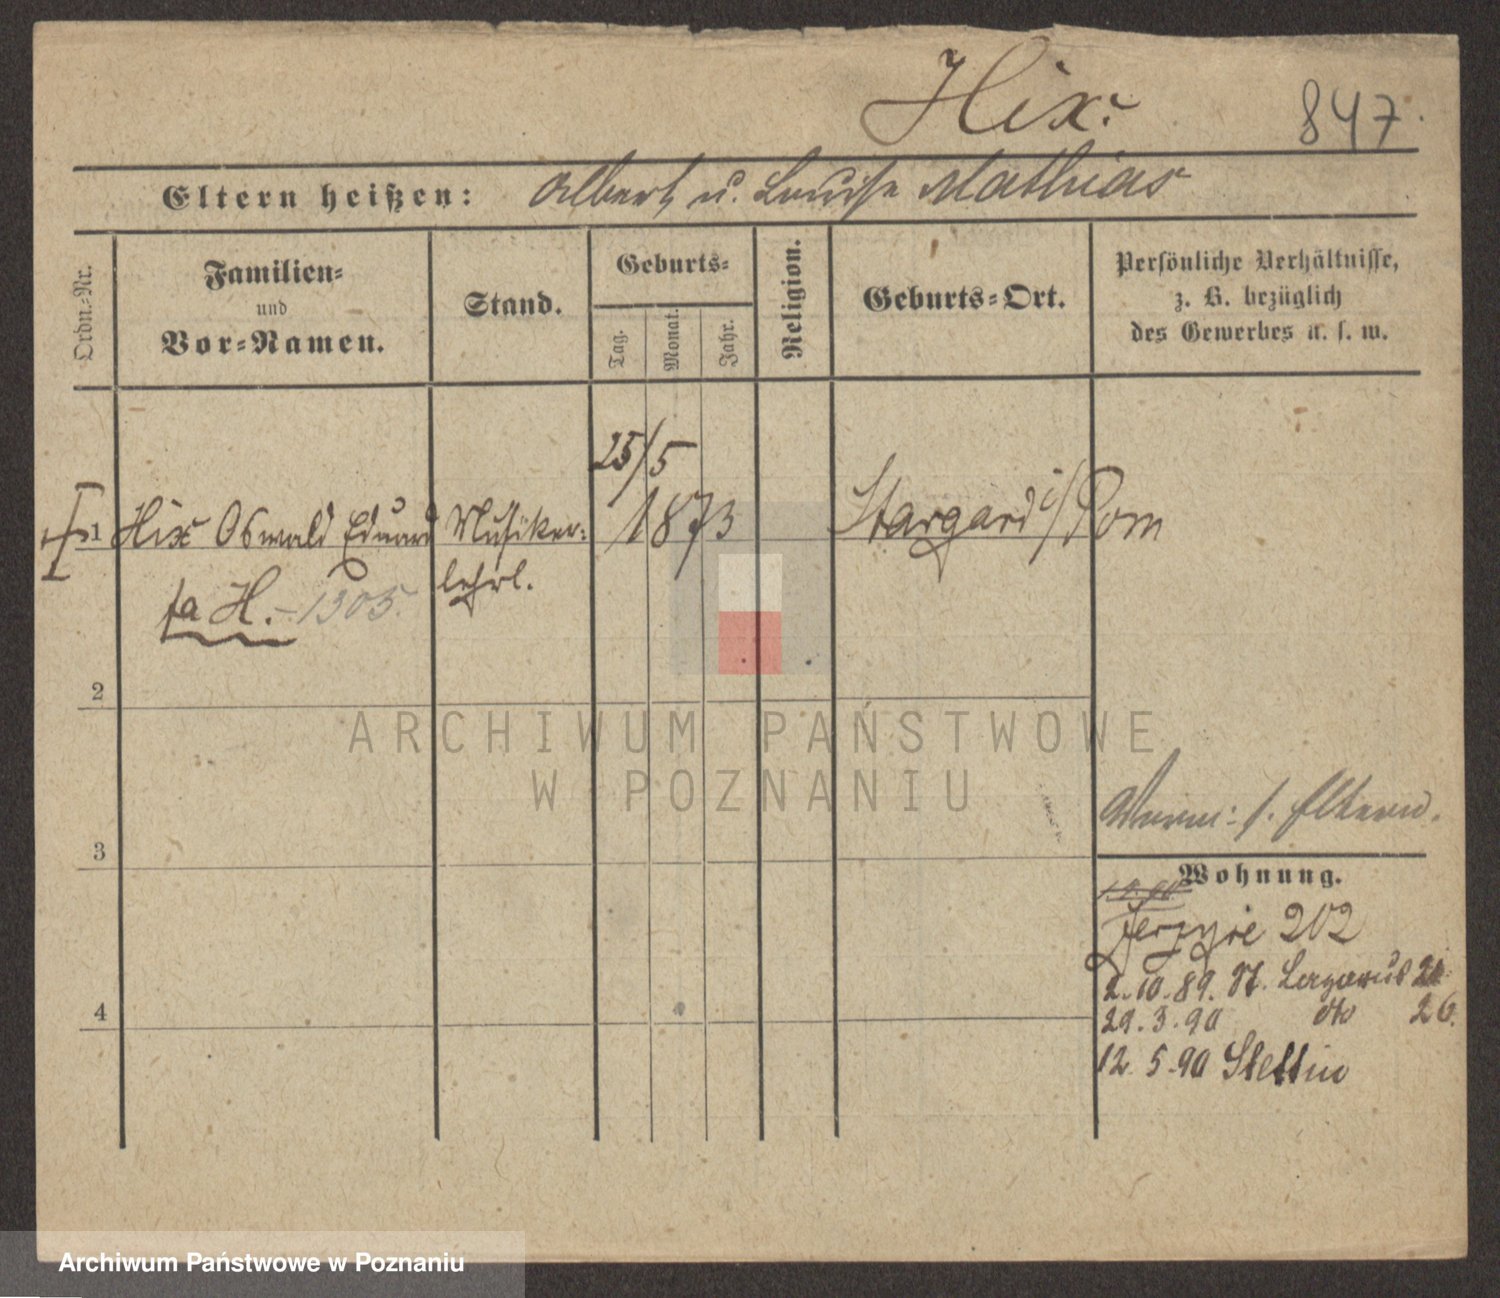 Hix.
847.
Eltern heißen: Albert u. Louise Mathias
Ordn.=Nr.
Familien=
und
Vor=Namen.
Stand.
Geburts=
Tag.
Monat.
Jahr.
Religion.
Geburts=Ort.
Persönliche Verhältnisse,
z. B. bezüglich
des Gewerbes u. s. w.
25/5
1 Hix Oswald Eduard Musiker= 1873 Stargard i/Pom
lehrl.
fa H. - 1305.
2
ARCHIWUM PAŃSTWOWE
W POZNANIU
s. Eltern.
3
Wohnung.
Jerzyce 202
2.10.89. St. Lazarus
29.3.90 dto 26.
4
12.5.90 Stettin
Archiwum Państwowe w Poznaniu